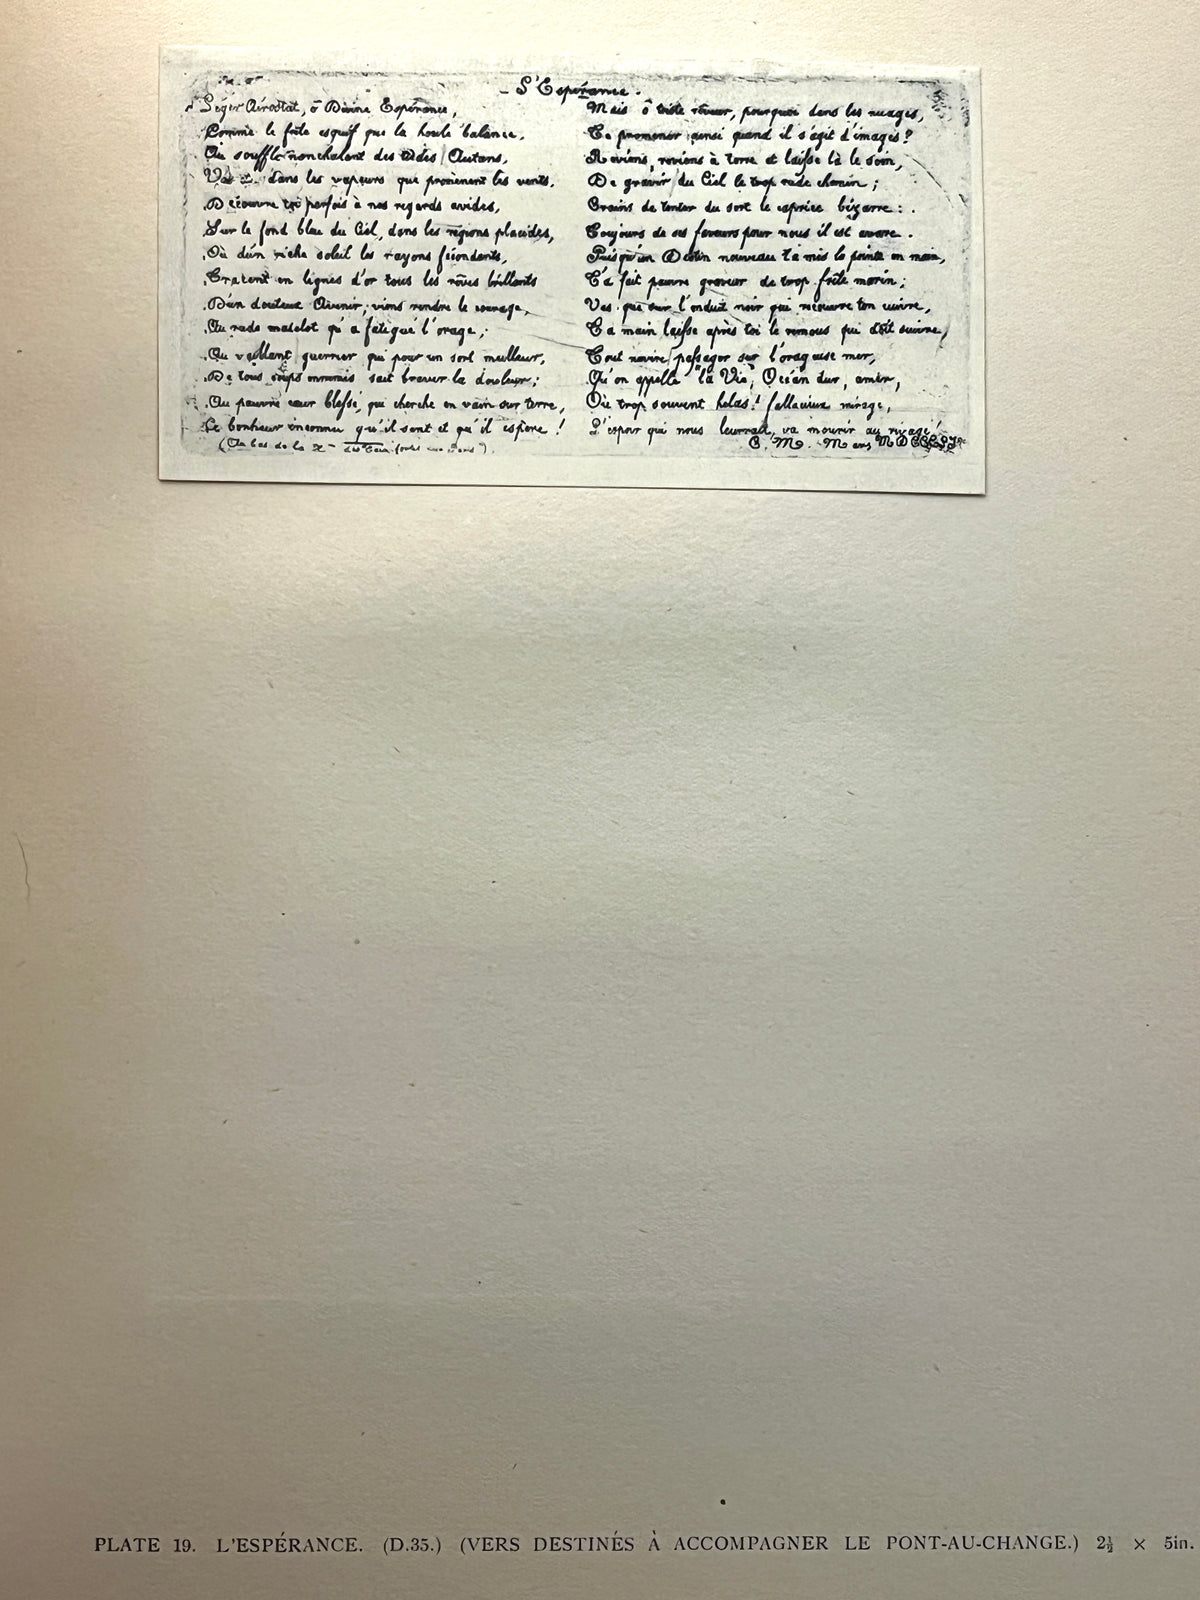 L'Espérance.
Léger Aérostat, ô Divine Espérance,
Comme le frêle esquif que la houle balance,
Au souffle nonchalant des tièdes Autans,
dans les vapeurs que promènent les vents.
Découvre toi parfois à nos regards avides,
Sur le fond bleu du Ciel, dans les régions placides,
Où d'un riche soleil les rayons fécondants,
Tracent en lignes d'or tous les rêves brillants
D'un douteux Avenir; viens rendre le courage,
Au rude matelot qu'a fatigué l'orage;
Au vaillant guerrier qui pour un sort meilleur,
De tous coups ennemis sait braver la douleur;
Au pauvre cœur blessé, qui cherche en vain sur terre,
Ce bonheur inconnu qu'il sent et qu'il espère!
(Au bas de la
Mais ô triste rêveur, pourquoi dans les nuages,
Te promener ainsi quand il s'agit d'images?
Reviens, reviens à terre et laisse là le soin,
De gravir du Ciel le trop rude chemin;
Crains de tenter du sort le caprice bizarre:
Toujours de ses faveurs pour nous il est avare.
Puisqu'un Destin nouveau t'a mis la pointe en main,
T'a fait pauvre graveur de trop frêle marin;
Vas, que sur l'enduit noir qui recouvre ton cuivre,
Ta main laisse après toi le remous qui doit suivre,
Tout navire passager sur l'orageuse mer,
Qu'on appelle "la Vie", Océan dur, amer,
Où trop souvent helas! fallacieux mirage,
L'espoir qui nous leurrait, va mourir au rivage!
C. M.
PLATE 19. L'ESPÉRANCE. (D.35.) (VERS DESTINÉS À ACCOMPAGNER LE PONT-AU-CHANGE.) 2½ × 5in.